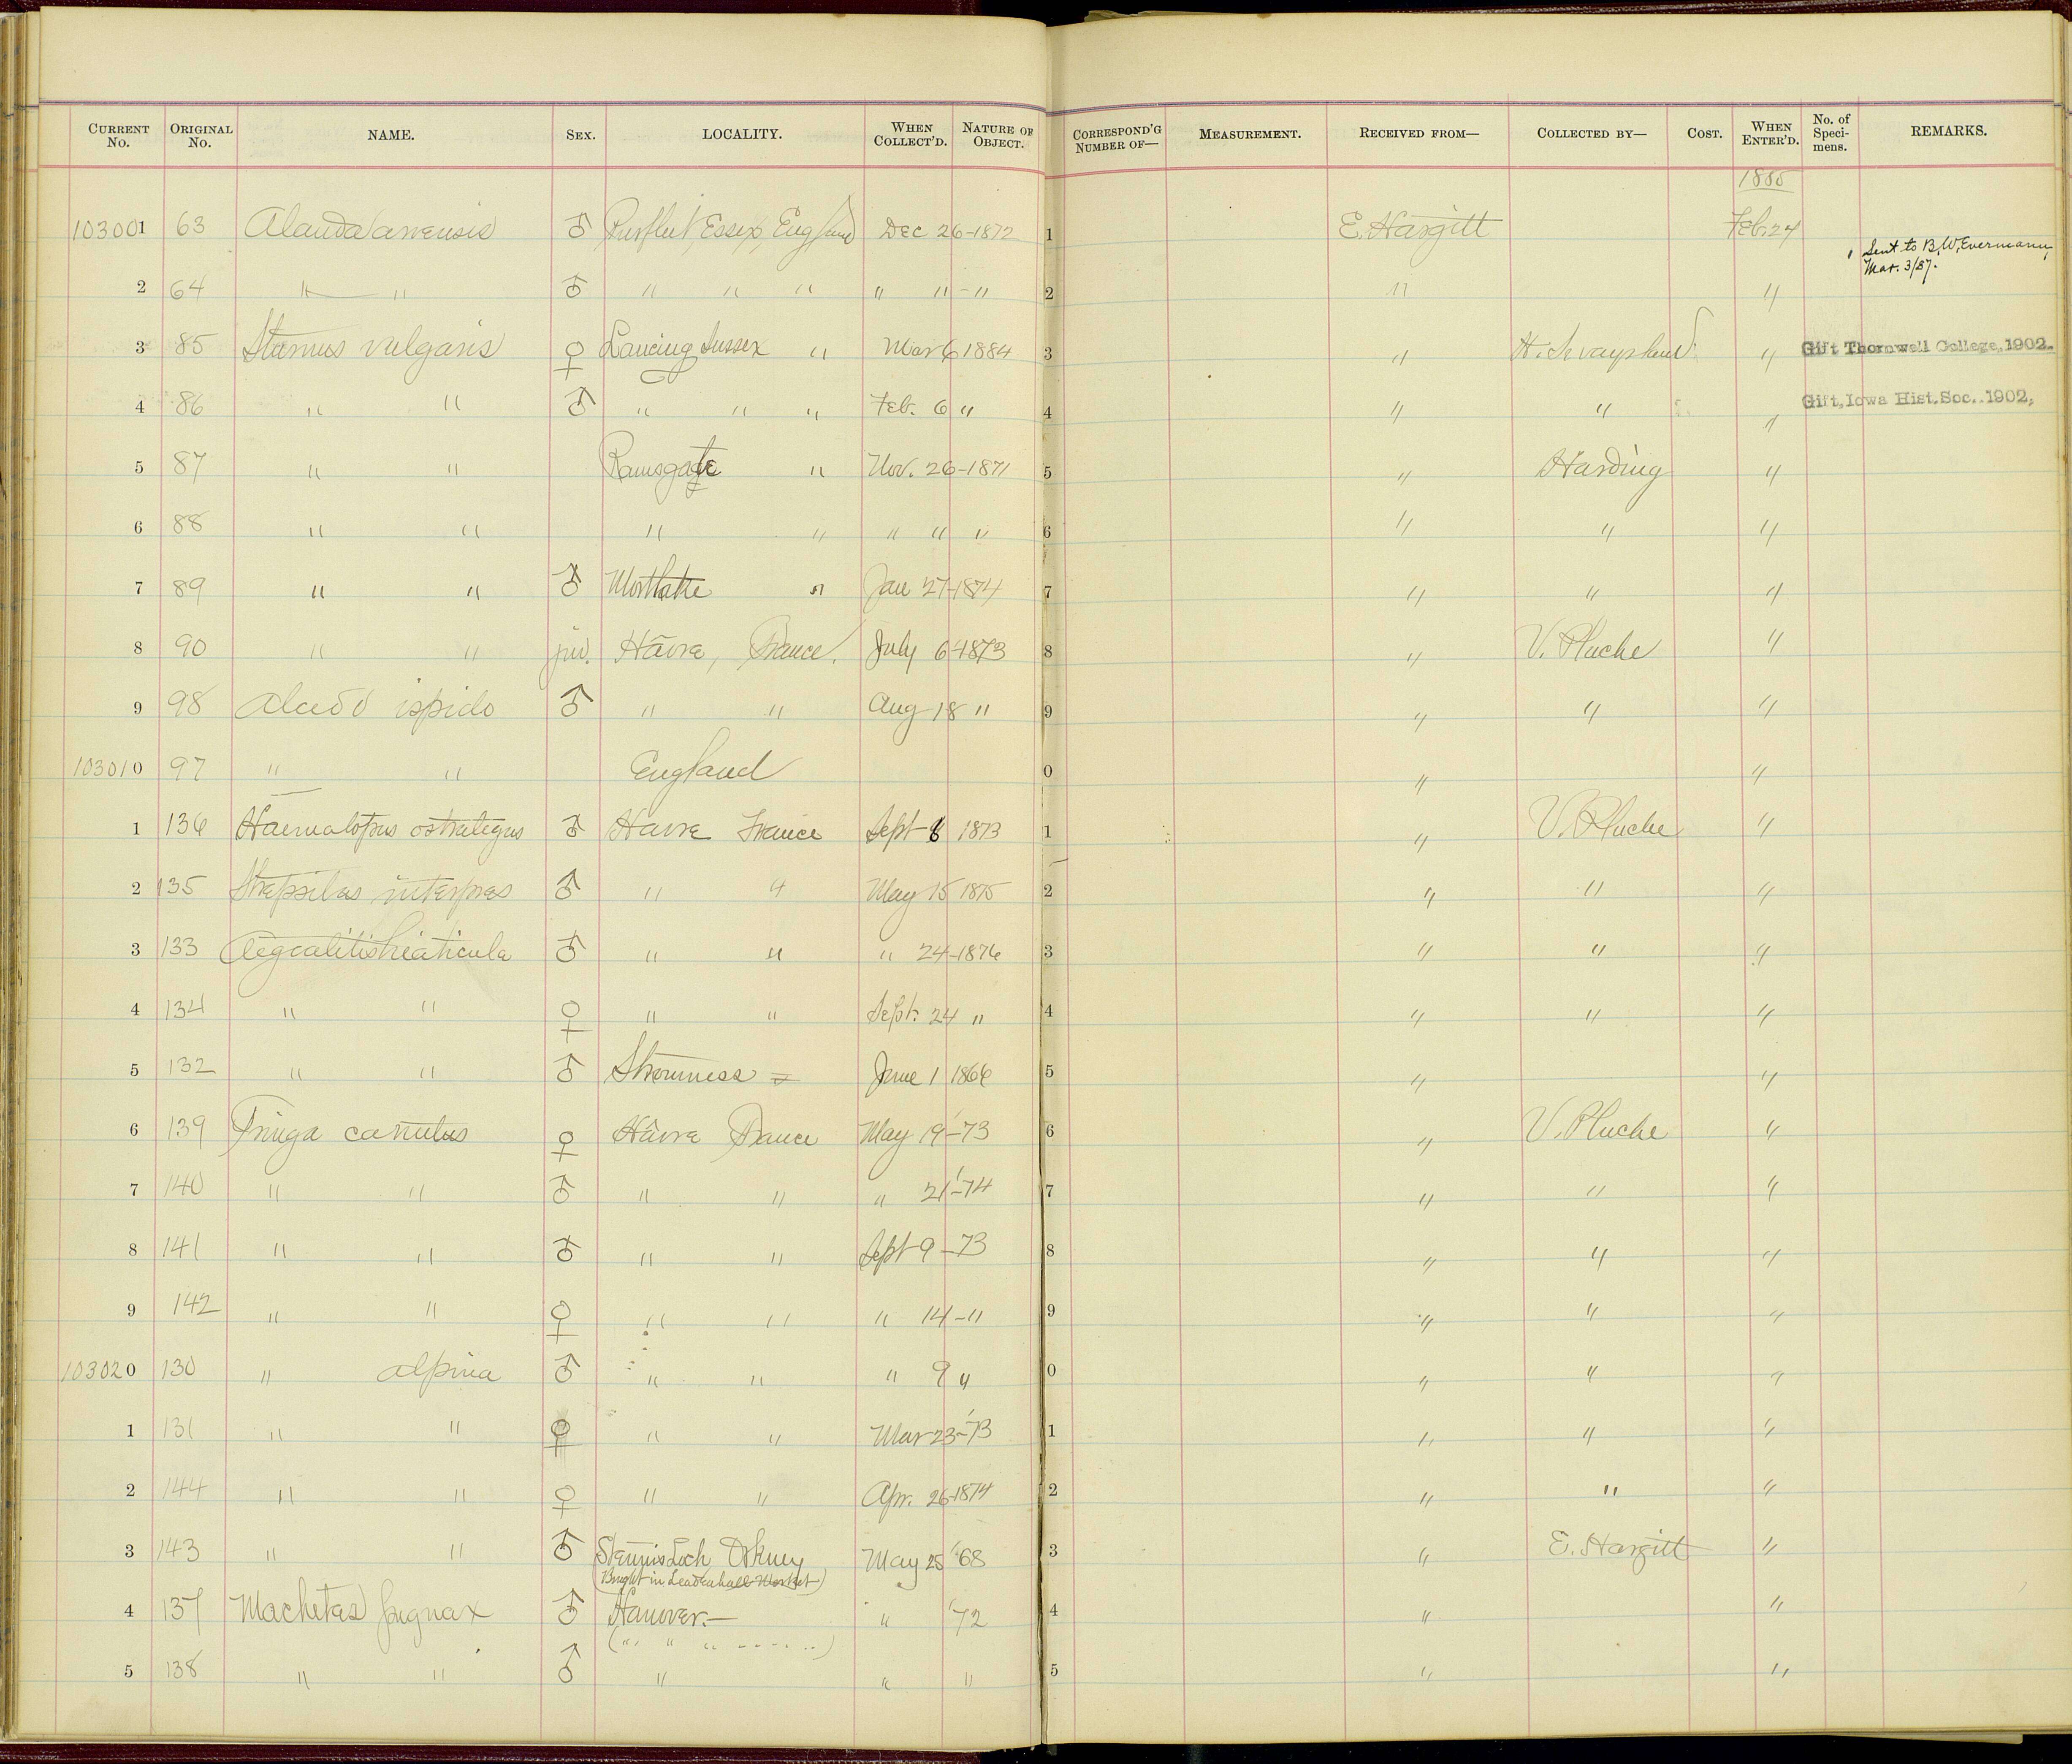 CURRENT No. ORIGINAL No. NAME. SEX. LOCALITY. WHEN COLLECT'D. NATURE OF OBJECT. CORRESPOND'G NUMBER OF— MEASUREMENT. RECEIVED FROM— COLLECTED BY— COST. WHEN ENTER'D. No. of Speci-mens. REMARKS.
1885
103001 63 Alauda arvensis ♂ Purfleet, Essex, England Dec 26-1872 1 E. Hargitt Feb. 24
Sent to B.W. Evermann, Mar. 3/87.
2 64 " " ♂ " " " " " - " 2 " "
3 85 Sturnus vulgaris ♀ Lancing Sussex " Mar 6 1884 3 " "  Gift Thornwell College, 1902.
4 86 " " ♂ " " " Feb. 6 " 4 " " " Gift, Iowa Hist. Soc. 1902,
5 87 " " Ramsgate " Nov. 26-1871 5 " Harding "
6 88 " " " " " " " 6 " " "
7 89 " " ♂ Mortlake " Jan 27-1874 7 " " "
8 90 " " juv. Hâvre, France. July 6-1873 8 " V. Pluche "
9 98 Alcedo ispida ♂ " " Aug 18 " 9 " " "
103010 97 " " England 0 " "
1 136 Haematopus ostralegus ♂ Havre France Sept 8 1873 1 " V. Pluche "
2 135 Strepsilas interpres ♂ " " May 15 1875 2 " " "
3 133 Aegialitis hiaticula ♂ " " " 24-1876 3 " " "
4 134 " " ♀ " " Sept. 24 " 4 " " "
5 132 " " ♂ Stromness June 1 1866 5 " "
6 139 Tringa canutus ♀ Hâvre France May 19-'73 6 " V. Pluche "
7 140 " " ♂ " " " 21-'74 7 " " "
8 141 " " ♂ " " Sept 9-73 8 " " "
9 142 " " ♀ " " " 14-" 9 " " "
103020 130 " alpina ♂ " " " 9 " 0 " " "
1 131 " " ♀ " " Mar 23-'73 1 " " "
2 144 " " ♀ " " Apr. 26-1874 2 " " "
3 143 " " ♂ Stennis Loch Orkney May 25 '68 3 " E. Hargitt "
(Bought in Leadenhall Market)
4 137 Machetes pugnax ♂ Hanover.— " '72 4 " "
(" " " " )
5 138 " " ♂ " " " 5 " "